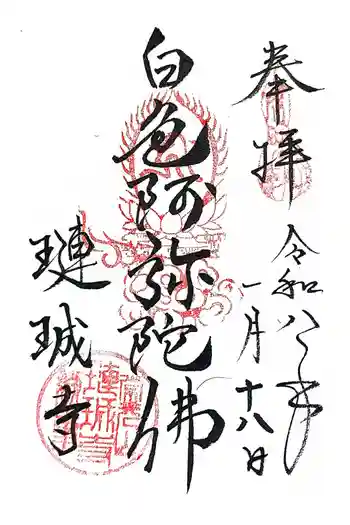 奉拝
令和八年
一月十八日
白色阿弥陀佛
璉珹寺